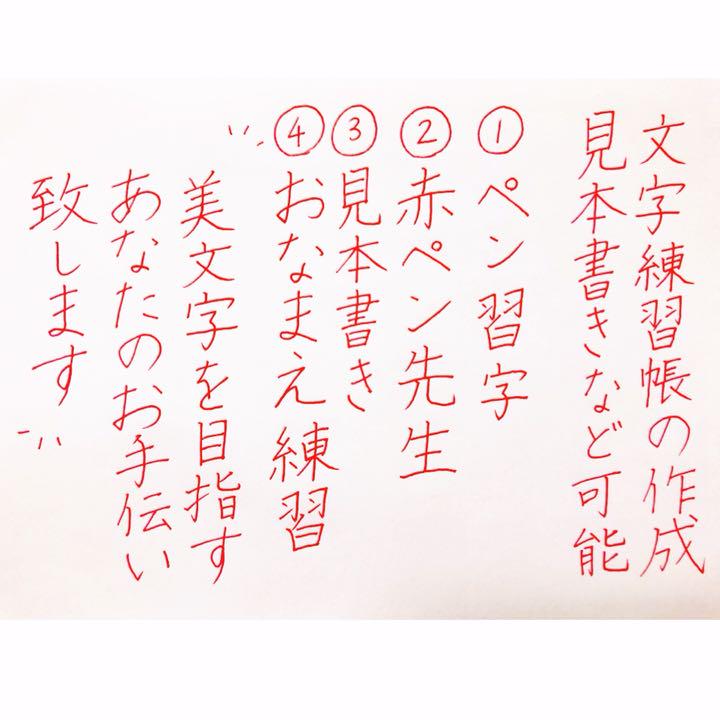 文字練習帳の作成
見本書きなど可能
①ペン習字
②赤ペン先生
③見本書き
④おなまえ練習
〝美文字を目指す
あなたのお手伝い
致します〟